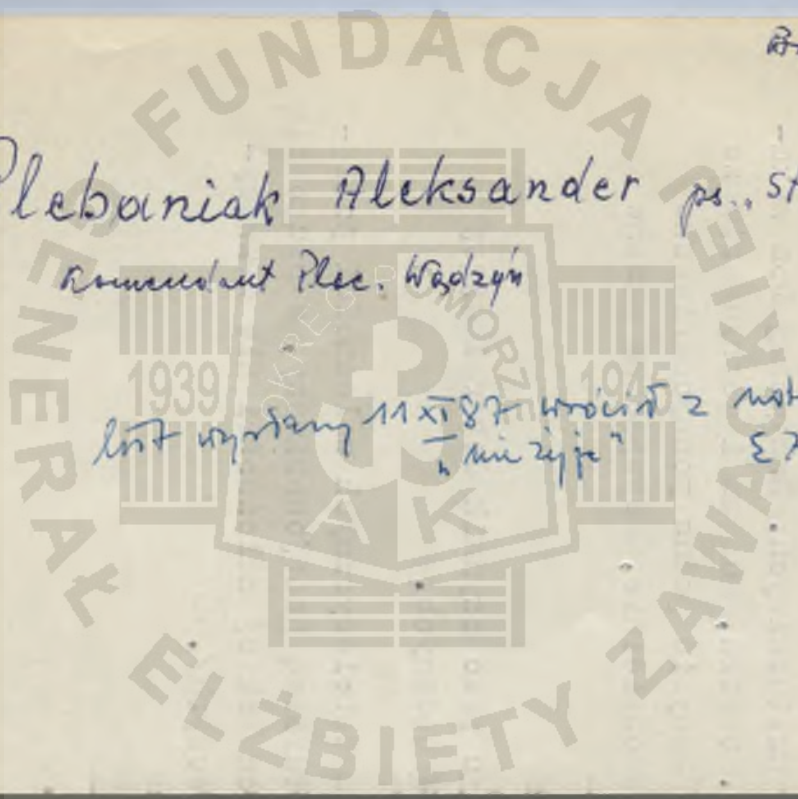 Plebaniak Aleksander ps. „
Komendant Plac. Wądzyń
list wysłany 11 XI 87 wrócił z
„nie żyje"
FUNDACJA GENERAŁ ELŻBIETY ZAWACKIEJ
OKRĘG POMORZE
1939 1945
AK